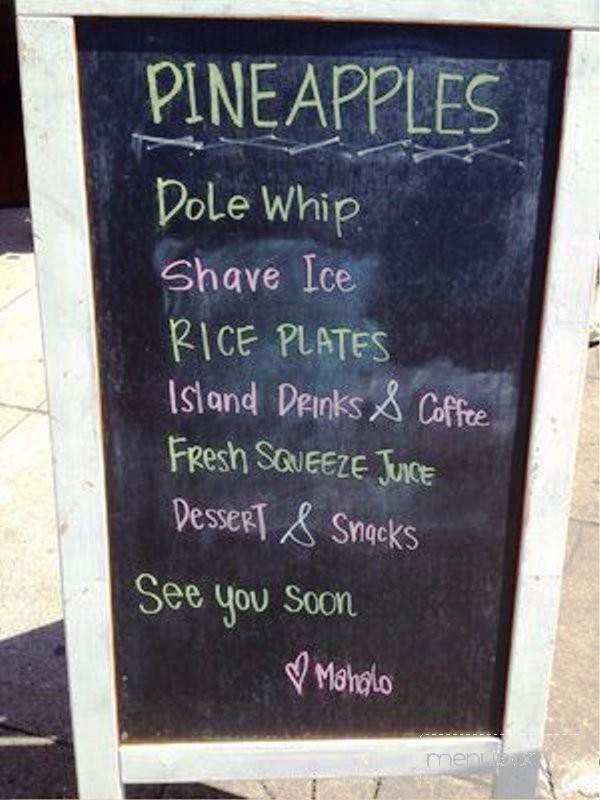 PINEAPPLES
Dole Whip
Shave Ice
RICE PLATES
Island Drinks & Coffee
Fresh SQUEEZE JUICE
DesserT & Snacks
See you soon
♡ Mahalo